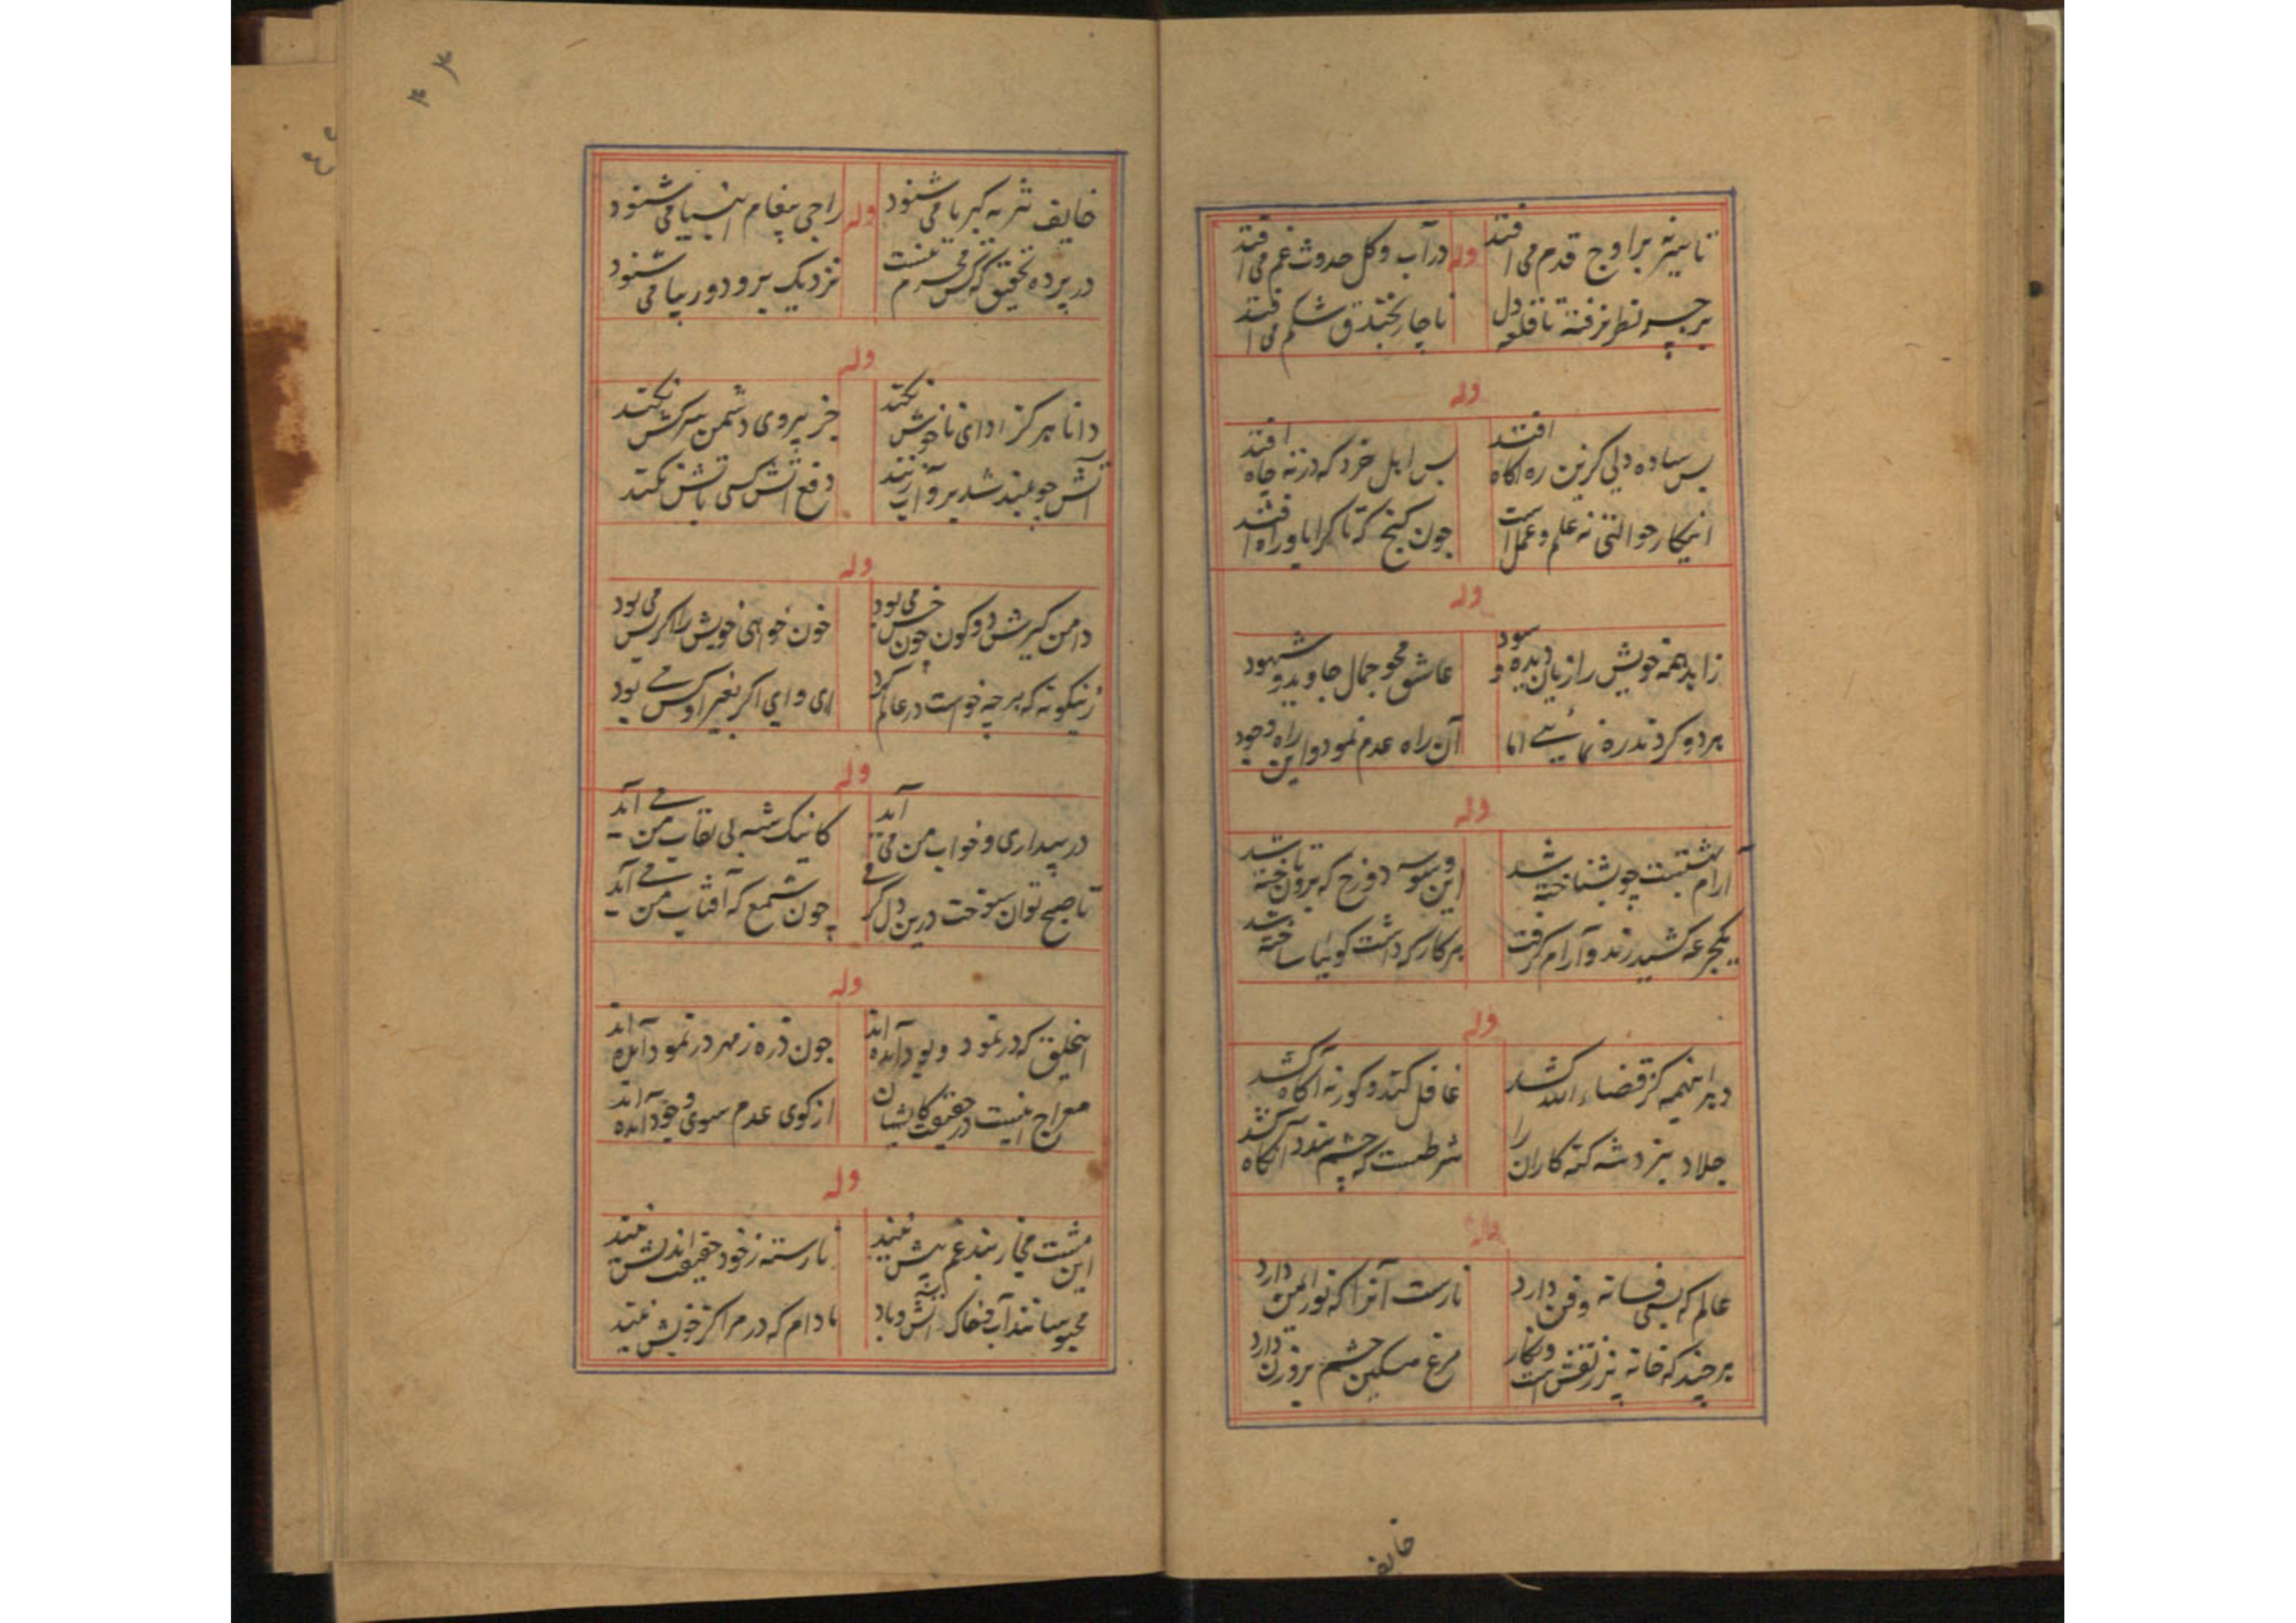 تا سیر نه بر اوج قدم می افتد
وله
در آب و گل حدوث غم می افتد
بر چه نظر نرفته تا قلعه دل
ناچار بخندق شکم می افتد
وله
بس ساده دلی کزین ره آگاه افتد
بس اهل خرد که در ته چاه افتد
اینکار حوالتی نه علم و عمل است
چون گنج که تا کرا باو راه افتد
وله
زاهد همه خویش را زیان دیده و سود
عاشق محو جمال جاوید و شهود
هر دو کردند ره نمائی اما
آن راه عدم نمود و این راه وجود
وله
آرام بهشتست چو بشناخته شد
این وسوسه دوزخ که برون تاخته شد
یکجرعه کشید رند و آرام گرفت
هر کار که داشت گوئیا ساخته شد
وله
در اینهمه کز قضاء الله کشد
غافل کند و کور نه آگاه کشد
جلاد بنزد شه گنه کاران را
شرطست که چشم بندد آنگاه کشد
وله
عالم که بسی فسانه و فن دارد
نارست آنرا که نور ایمن دارد
هر چند که خانه پر ز نقش است و نگار
مرغ مسکین چشم بروزن دارد
خایف
خایف نثر به کبریا می شنود
وله
راجی پیغام انبیا می شنود
در پرده تحقیق که کس محرم نیست
نزدیک برو دور بیا می شنود
وله
دانا هرگز ادای ناخوش نکند
جز پیروی دشمن سرکش نکند
آتش چو بلند شد برو آب زنند
دفع آتش کسی بآتش نکند
وله
دامن گیرش دو کون چون خس می بود
خون خواهی خویش را گر پس می بود
زینگونه که هر چه خواست در عالم کرد
ای وای اگر بغیر او کس می بود
وله
در بیداری و خواب من می آید
کاینک شه بی نقاب من می آید
تا صبح توان سوخت درین دل گرمی
چون شمع که آفتاب من می آید
وله
اینخلق که در نمود و بود آمده اند
چون ذره ز مهر در نمود آمده اند
معراج اینست در حقیقت کایشان
از کوی عدم سوی وجود آمده اند
وله
این مشت مجاز بند غم بیش نیند
نارسته ز خود حقیقت اندیش نیند
محبوسانند آب و خاک آتش و باد
مادام که در مراکز خویش نیند